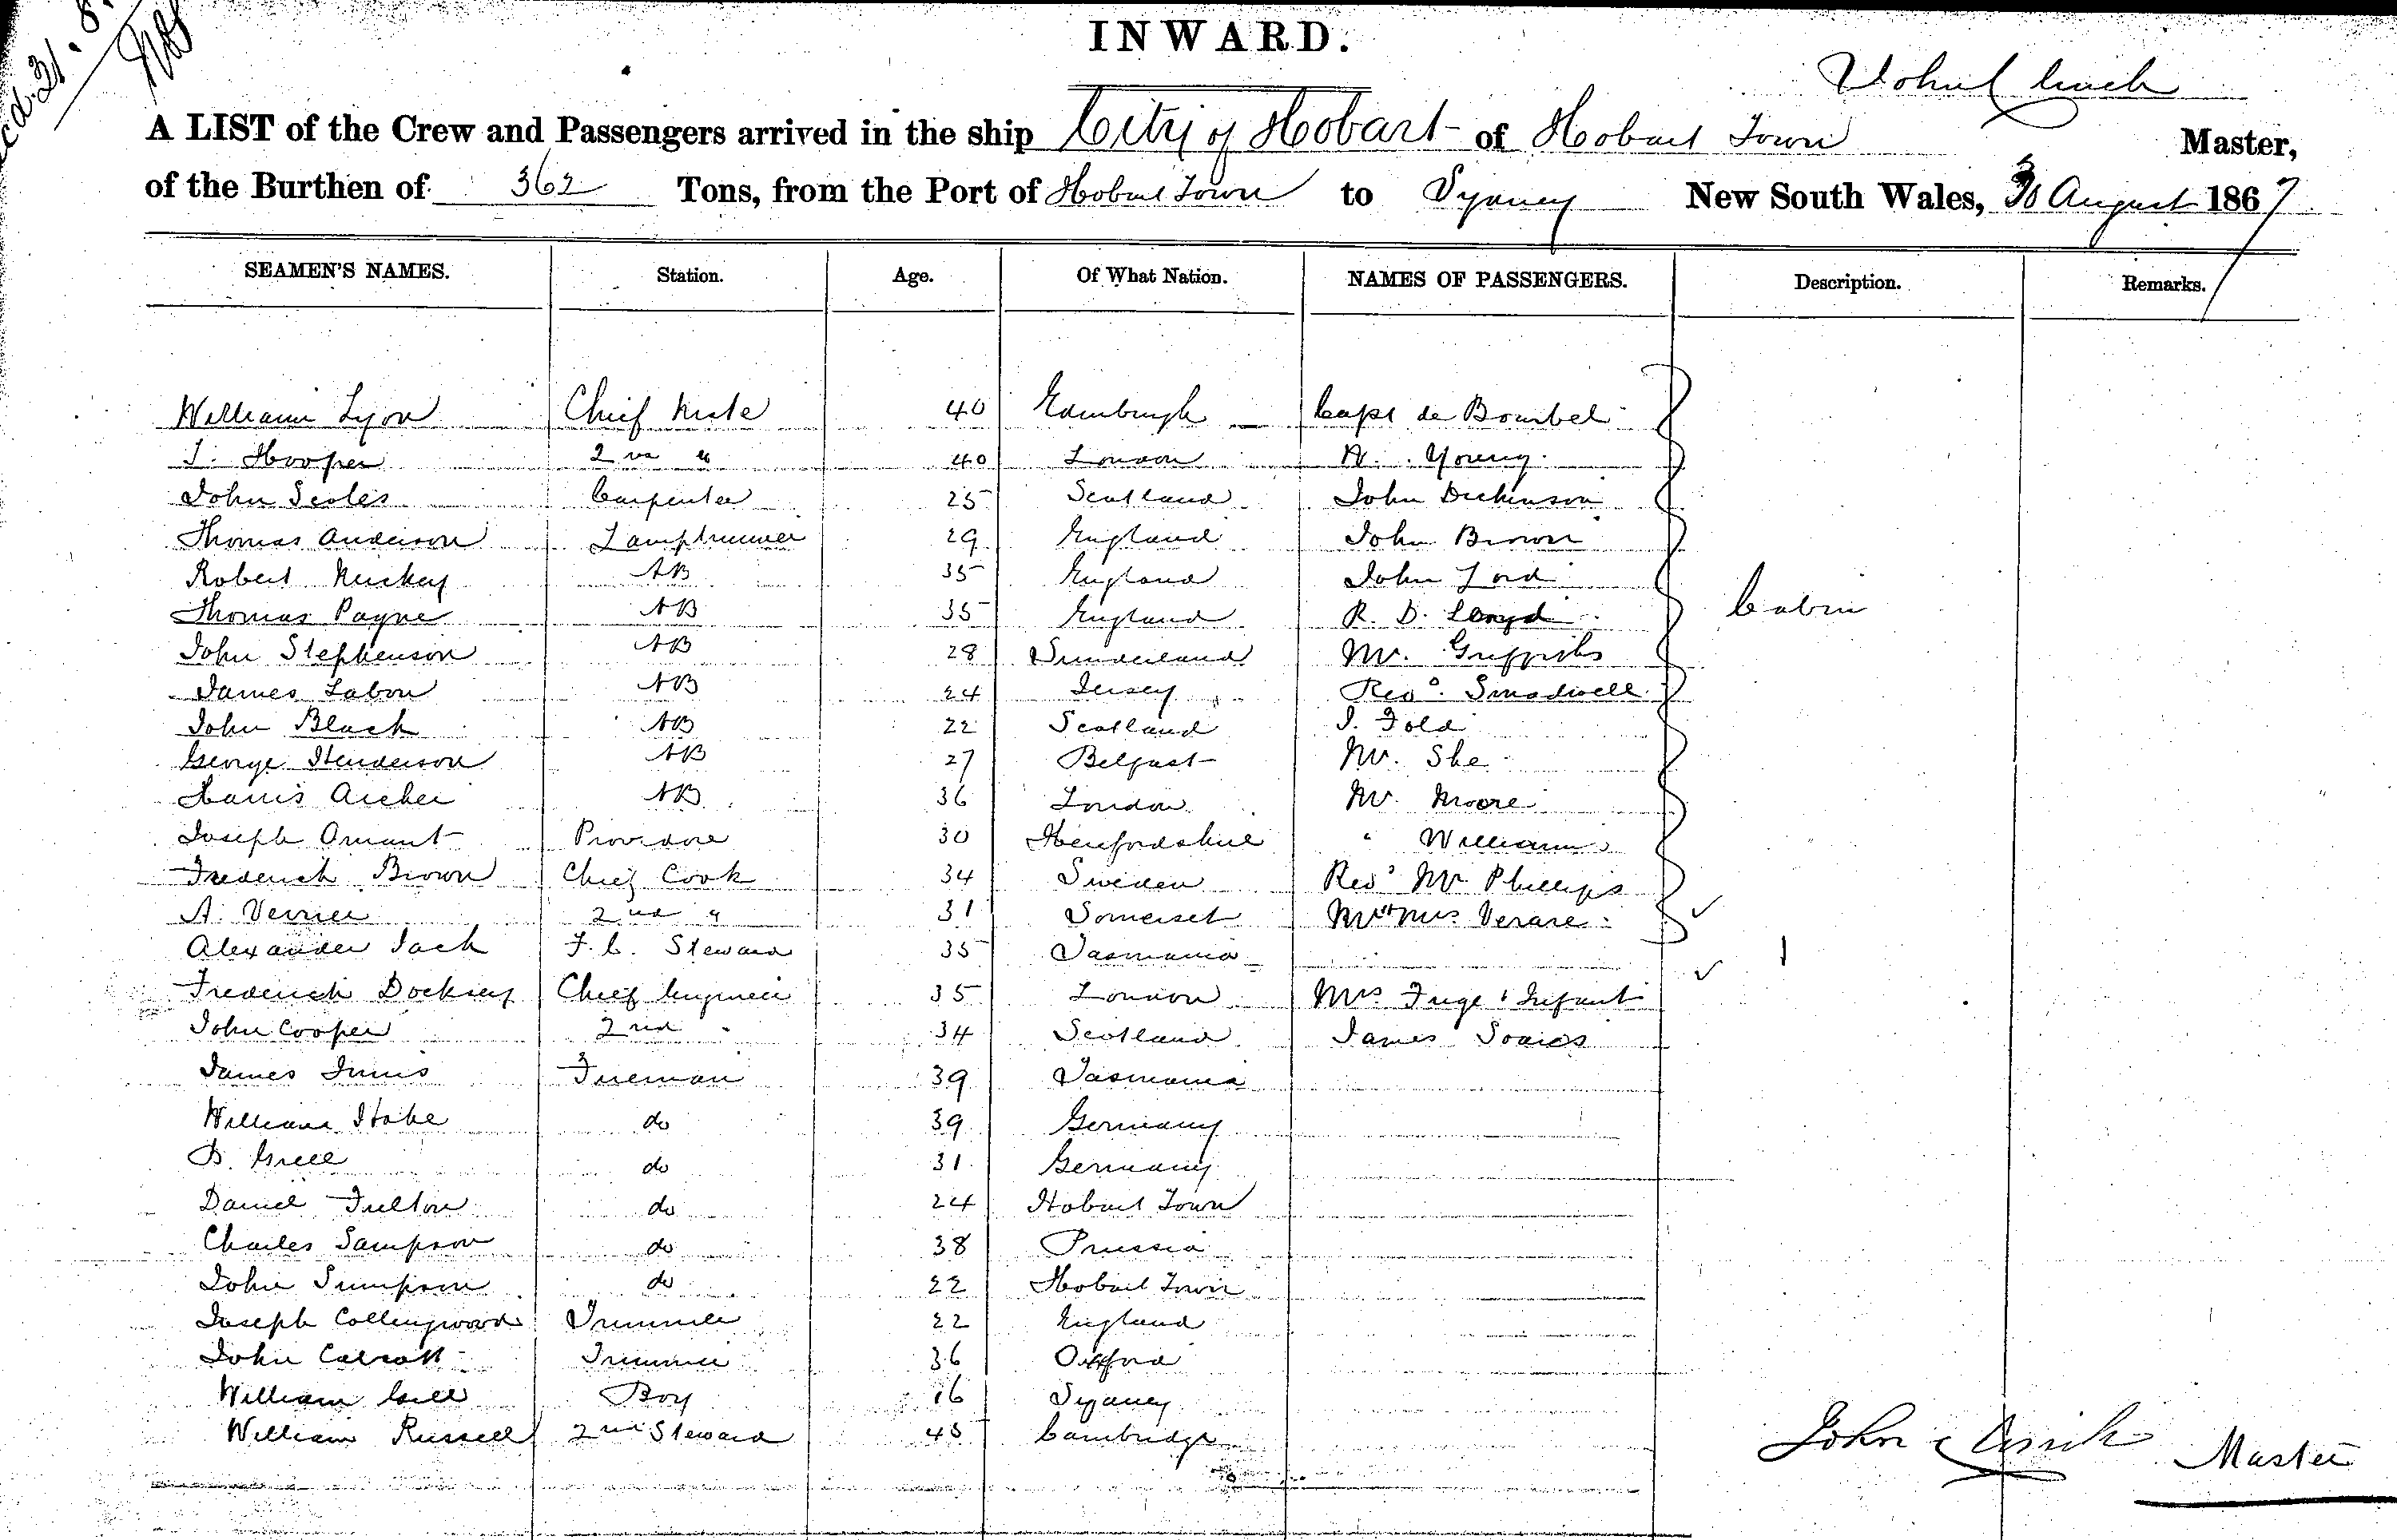 INWARD.
John Clinch
A LIST of the Crew and Passengers arrived in the ship City of Hobart of Hobart Town Master,
of the Burthen of 362 Tons, from the Port of Hobart Town to Sydney New South Wales, 30 August 1867
SEAMEN'S NAMES. Station. Age. Of What Nation. NAMES OF PASSENGERS. Description. Remarks.
William Lyon Chief Mate 40 Edinburgh Capt de Bombel
T. Hooper 2nd " 40 London A. Young
John Scoles Carpenter 25 Scotland John Dickinson
Thomas Anderson Lamptrimmer 29 England John Brown
Robert Muckey AB 35 England John Lord
Thomas Payne AB 35 England R. D. Lloyd Cabin
John Stephenson AB 28 Sunderland Mr. Griffiths
James Labon AB 24 Jersey Revd. Smadwell
John Black AB 22 Scotland J. Fold
George Henderson AB 27 Belfast Mr. She
Harris Archer AB 36 London Mr. Moore
Joseph Orment Providore 30 Herefordshire " Williams
Frederick Brown Chief Cook 34 Sweden Revd Mr Phillips
A. Verrier 2nd " 31 Somerset Mr & Mrs Verare
Alexander Jack F. C. Steward 35 Tasmania
Frederick Docksey Chief Engineer 35 London Mrs Fuge & Infant
John Cooper 2nd " 34 Scotland James Soaies
James Innis Fireman 39 Tasmania
William Hobe do 39 Germany
B. Grell do 31 Germany
Daniel Fulton do 24 Hobart Town
Charles Sampson do 38 Prussia
John Simpson do 22 Hobart Town
Joseph Collingwood Trimmer 22 England
John Calcott Trimmer 36 Oxford
William Gill Boy 16 Sydney
William Russell 2nd Steward 45 Cambridge
John Clinch Master